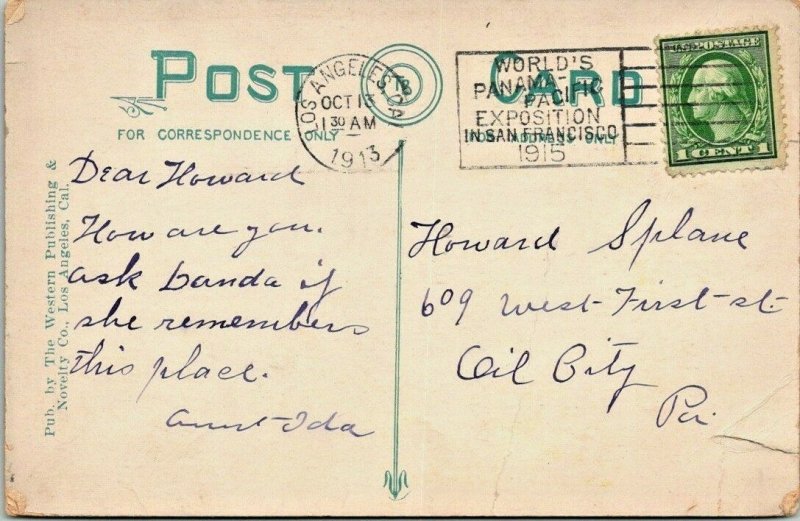 POST CARD
FOR CORRESPONDENCE ONLY
LOS ANGELES, CAL.
OCT 13
1 30 AM
1913
WORLD'S
PANAMA-PACIFIC
EXPOSITION
IN SAN FRANCISCO
1915
U.S. POSTAGE
1 CENT 1
Dear Howard
How are you.
ask banda if
she remembers
this place.
aunt Ida
Howard Splane
609 West-First-st.
Oil City
Pa.
Pub. by The Western Publishing &
Novelty Co., Los Angeles, Cal.